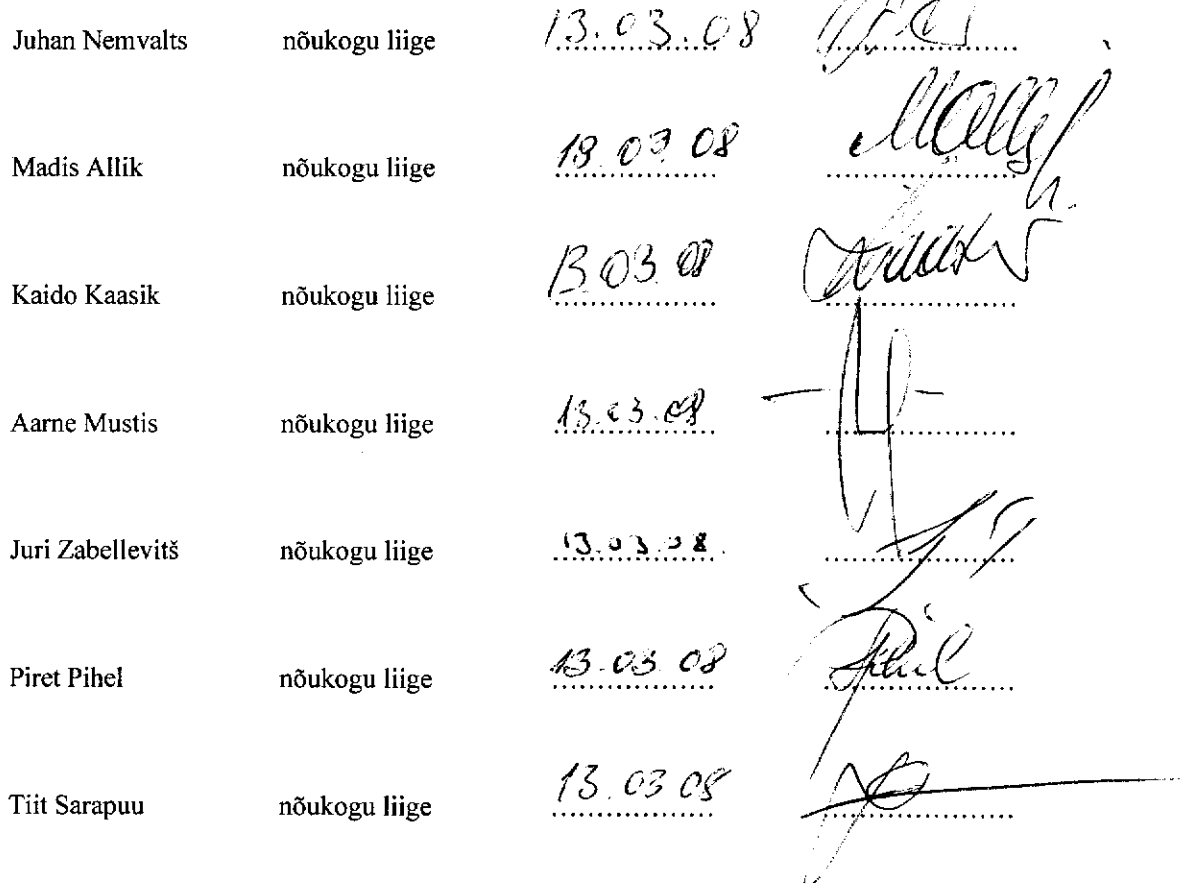 Juhan Nemvalts nõukogu liige 13.03.08
Madis Allik nõukogu liige 13.03.08
Kaido Kaasik nõukogu liige 13.03.08
Aarne Mustis nõukogu liige 13.03.08
Juri Zabellevitš nõukogu liige 13.03.08
Piret Pihel nõukogu liige 13.03.08 Pihel
Tiit Sarapuu nõukogu liige 13.03.08